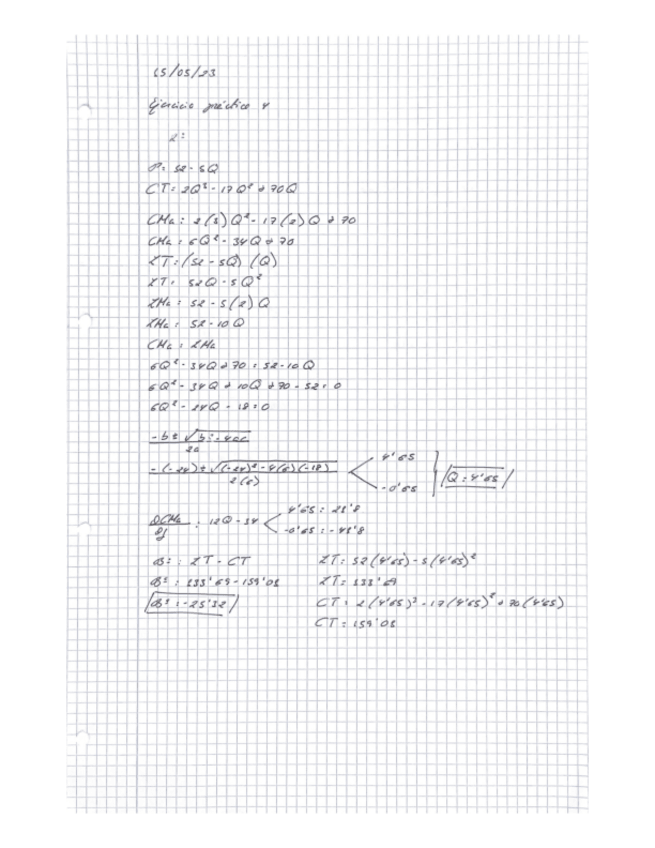 15/05/23
Ejercicio práctico 4
2:
P: 52 - 5Q
CT: 2Q³ - 17Q² + 70Q
CMa: 2(3)Q² - 17(2)Q + 70
CMa: 6Q² - 34Q + 70
IT: (52 - 5Q)(Q)
IT: 52Q - 5Q²
IMa: 52 - 5(2)Q
IMa: 52 - 10Q
CMa = IMa
6Q² - 34Q + 70 = 52 - 10Q
6Q² - 34Q + 10Q + 70 - 52 = 0
6Q² - 24Q - 18 = 0
-b ± √b² - 4ac
2a
-(-24) ± √(-24)² - 4(6)(-18)
2(6)
4'65
-0'65
Q = 4'65
∂CMa : 12Q - 34
4'65 = 21'8
-0'65 = -41'8
Bº : IT - CT
Bº : 133'69 - 159'01
Bº : -25'32
IT = 52(4'65) - 5(4'65)²
IT = 133'69
CT = 2(4'65)³ - 17(4'65)² + 70(4'65)
CT = 159'01